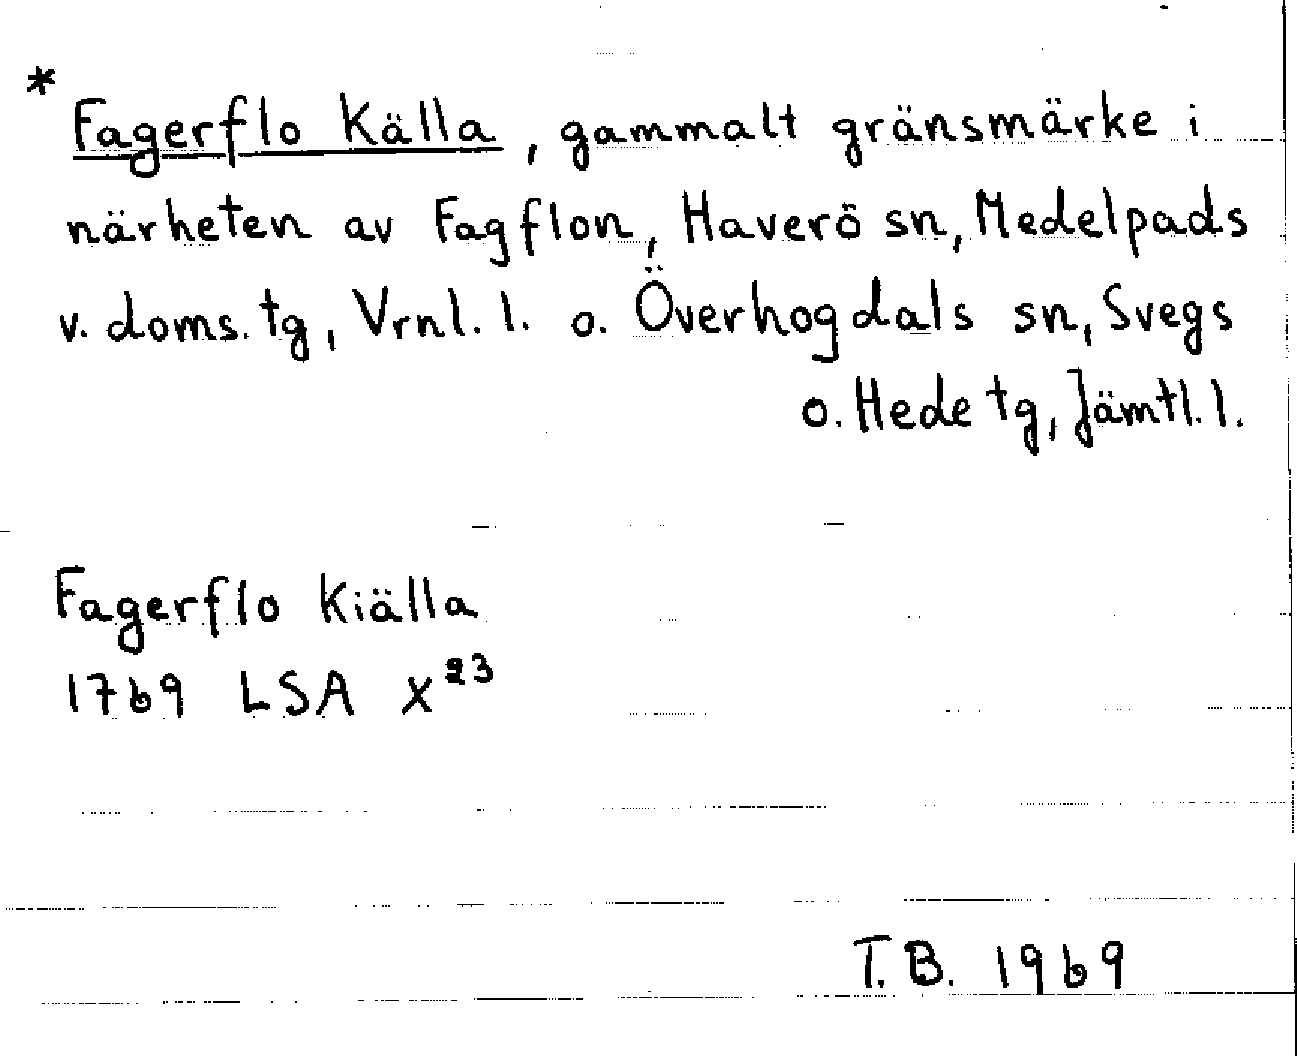 * Fagerflo Källa, gammalt gränsmärke i
närheten av Fagflon, Haverö sn, Medelpads
v. doms. tg, Vrnl. l. o. Överhogdals sn, Svegs
o. Hede tg, Jämtl. l.
Fagerflo Kiälla
1769 LSA X²³
T.B. 1969